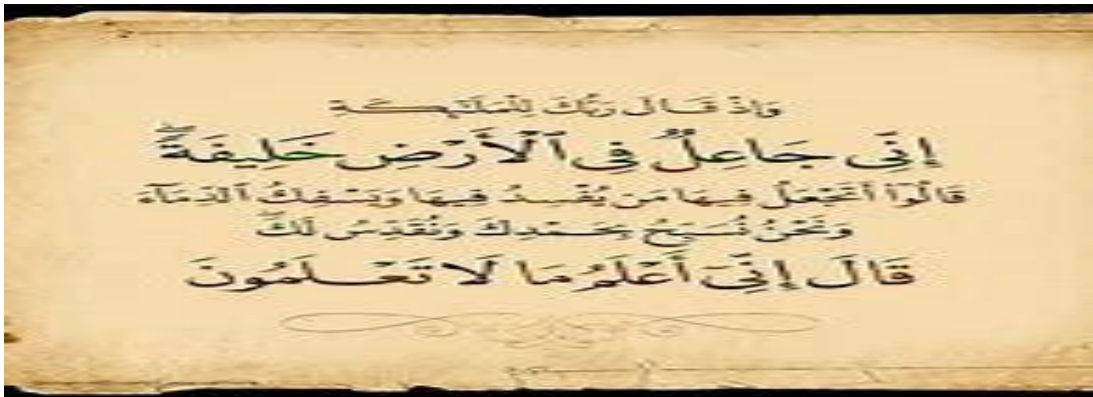 وَإِذْ قَالَ رَبُّكَ لِلْمَلَٰٓئِكَةِ
إِنِّى جَاعِلٌ فِى ٱلْأَرْضِ خَلِيفَةً ۖ
قَالُوٓا۟ أَتَجْعَلُ فِيهَا مَن يُفْسِدُ فِيهَا وَيَسْفِكُ ٱلدِّمَآءَ
وَنَحْنُ نُسَبِّحُ بِحَمْدِكَ وَنُقَدِّسُ لَكَ ۖ
قَالَ إِنِّىٓ أَعْلَمُ مَا لَا تَعْلَمُونَ